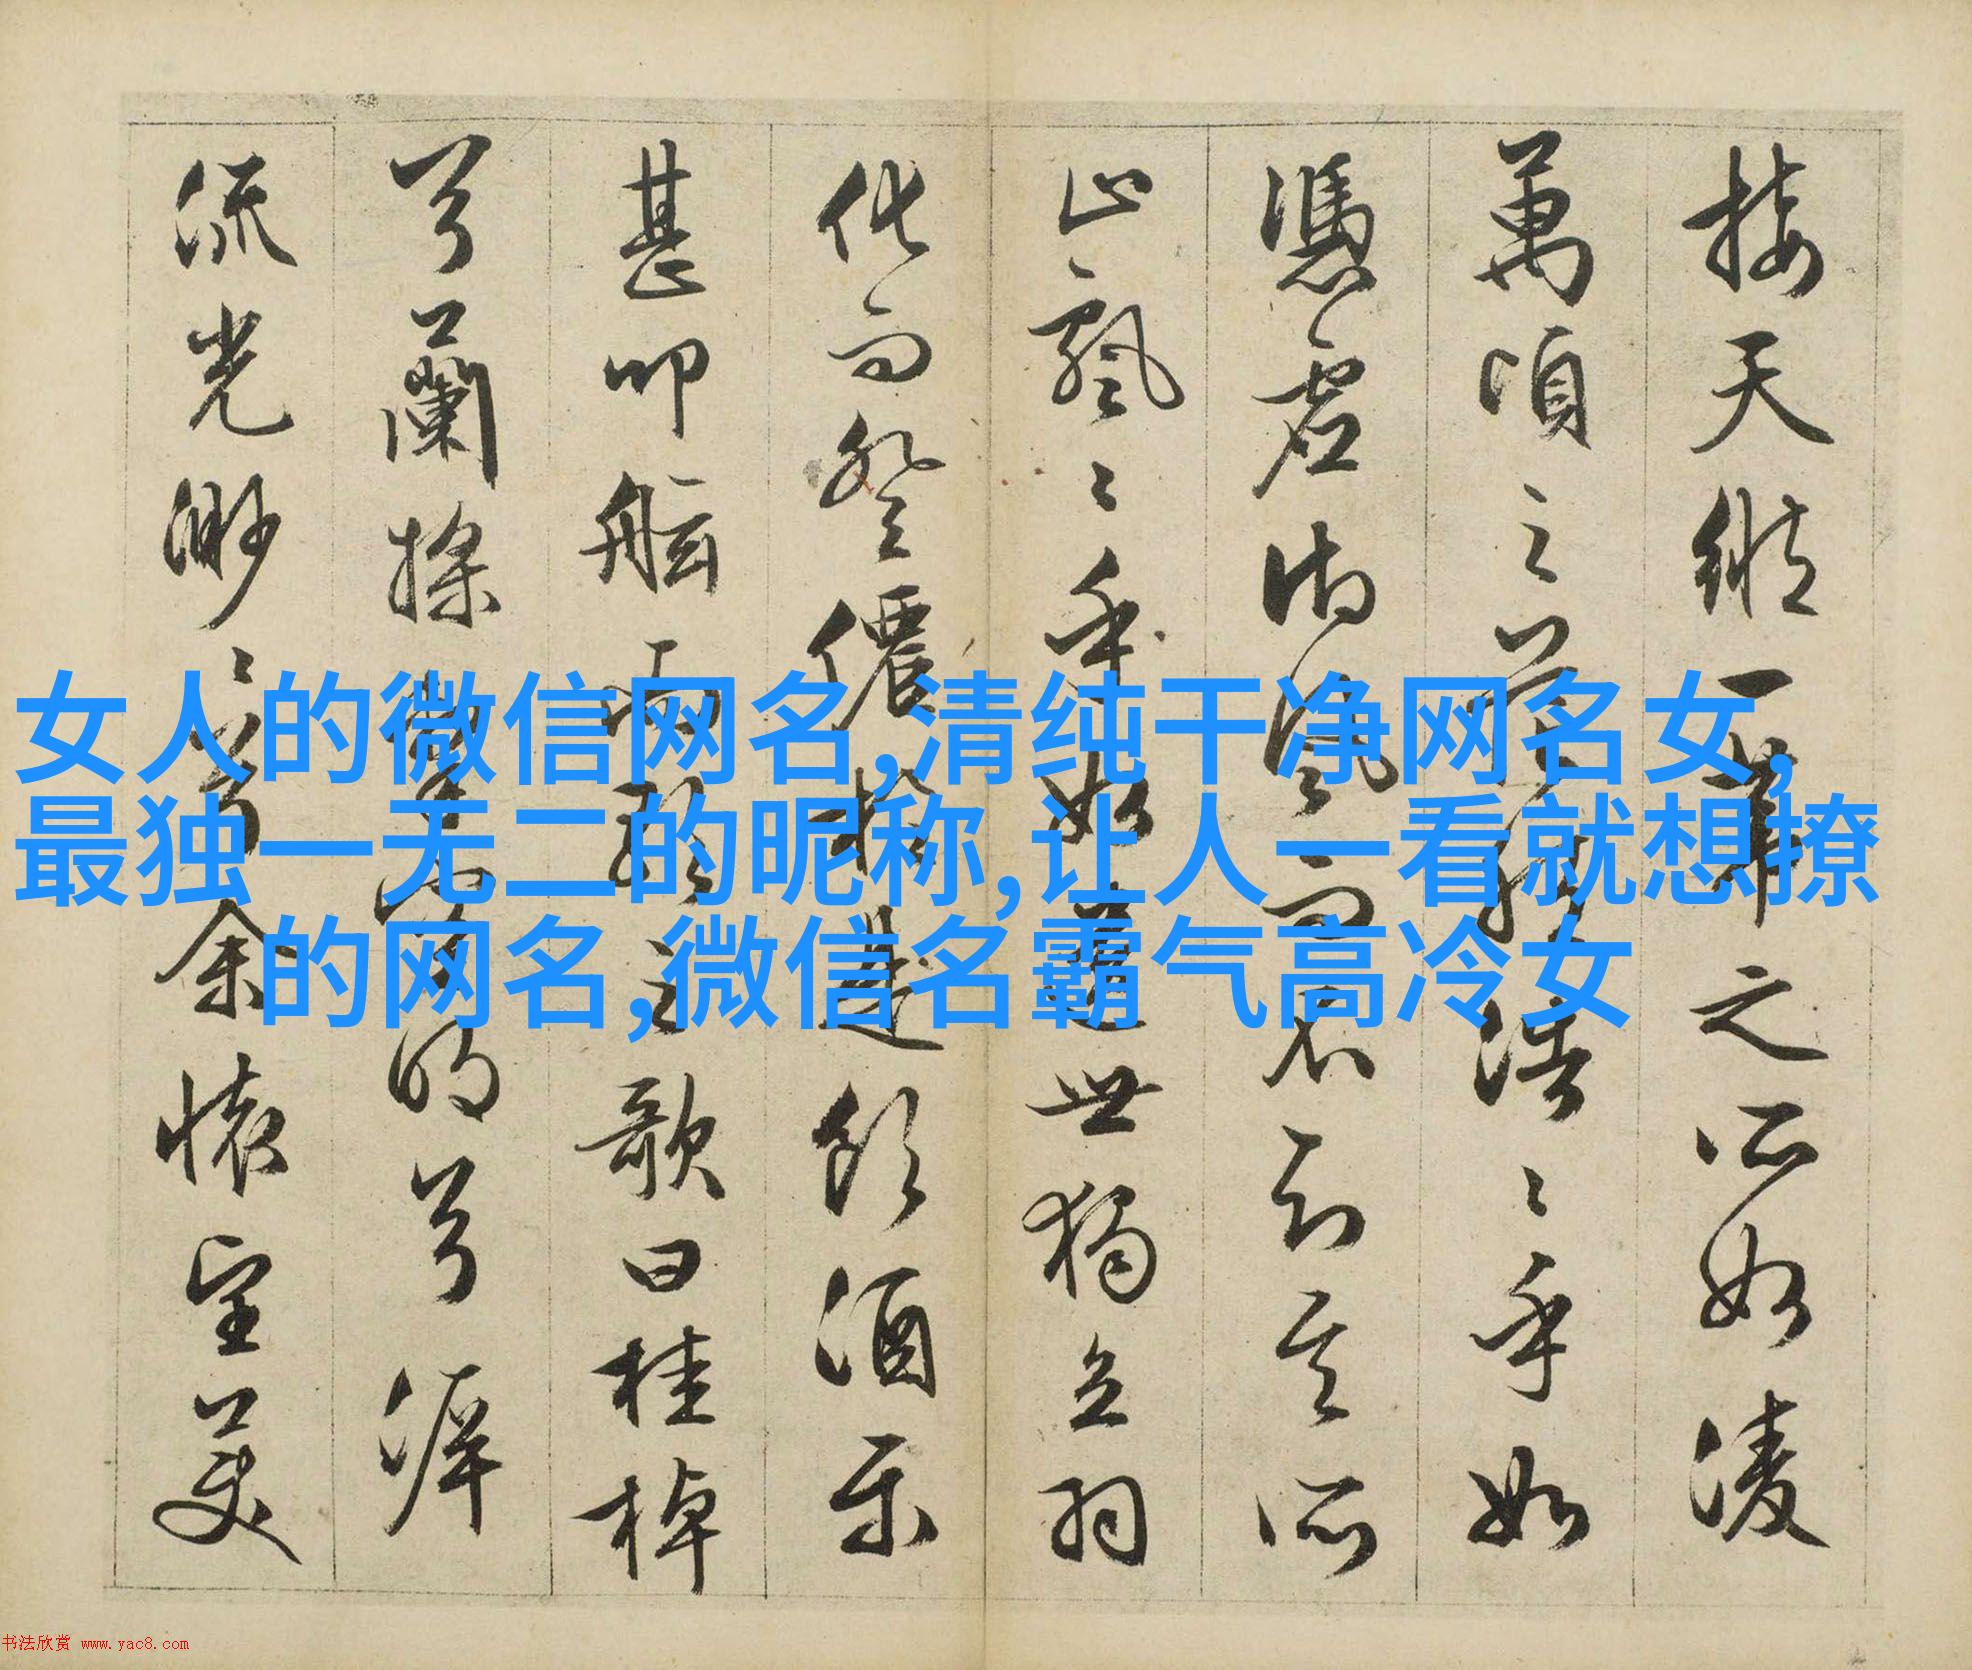 女人的微信网名,清纯干净网名女,
最独一无二的昵称,让人一看就想撩
的网名,微信名霸气高冷女
接天縱一葦之所如凌
萬頃之茫然浩〻乎如
憑虛御風而不知其所
止飄〻乎如遺世獨立羽
化而登僊於是飲酒樂
甚叩舷而歌之歌曰桂棹
兮蘭槳擊空明兮泝
流光渺〻兮余懷望美
书法欣赏 www.yac8.com